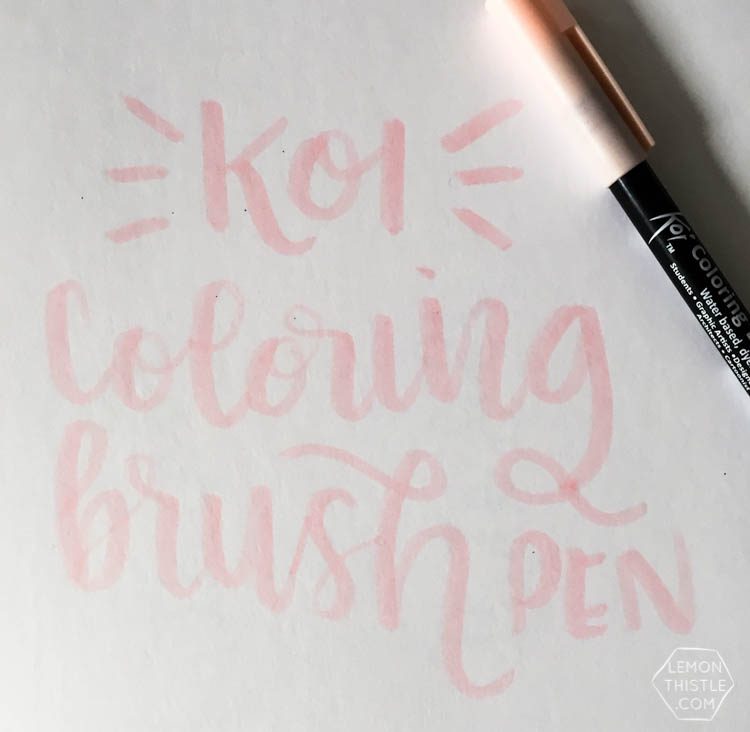 KOI
coloring
brush PEN
Koi
TM
Coloring
Water based, dye
Students • Graphic Artists • Design
Architects • Cartoonist
LEMON
THISTLE
.COM